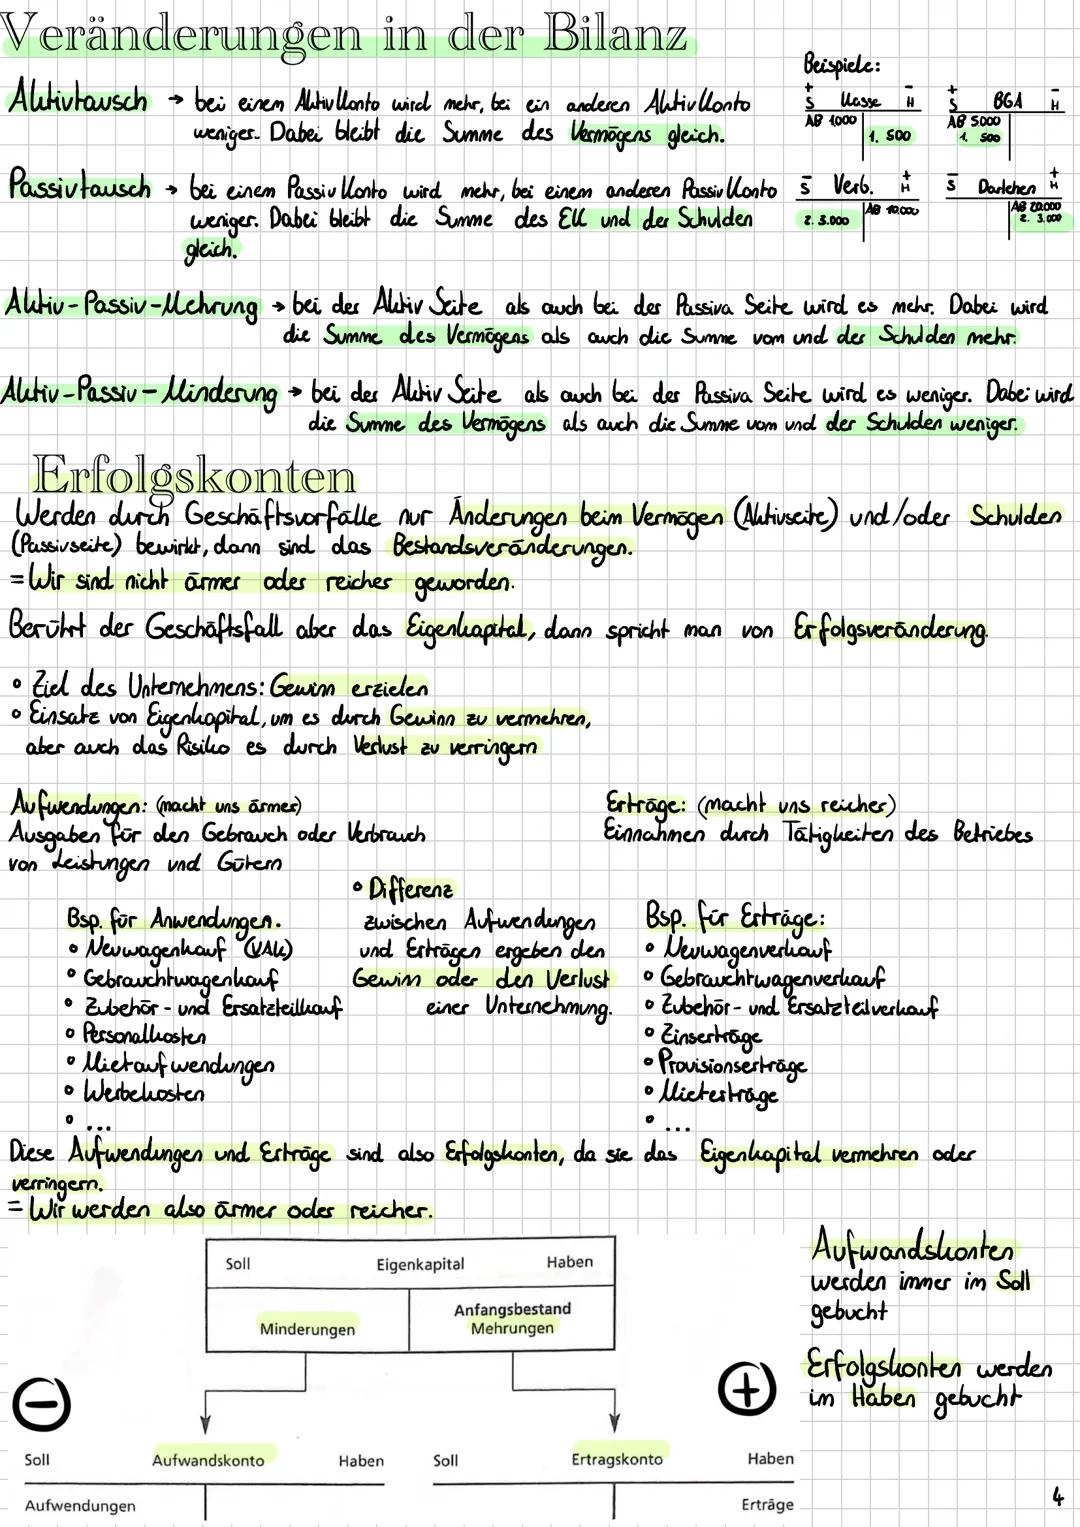 Veränderungen in der Bilanz
Beispiele:
Aktivtausch → bei einem Aktivkonto wird mehr, bei ein anderen Aktivkonto
weniger. Dabei bleibt die Summe des Vermögens gleich.
+ S Kasse - H
AB 1000
1. 500
+ S BGA - H
AB 5000
1. 500
Passivtausch → bei einem Passivkonto wird mehr, bei einem anderen Passivkonto
weniger. Dabei bleibt die Summe des EK und der Schulden
gleich.
- S Verb. + H
AB 10.000
2. 3.000
- S Darlehen + H
AB 20.000
2. 3.000
Aktiv-Passiv-Mehrung → bei der Aktiv Seite als auch bei der Passiva Seite wird es mehr. Dabei wird
die Summe des Vermögens als auch die Summe vom und der Schulden mehr.
Aktiv-Passiv-Minderung → bei der Aktiv Seite als auch bei der Passiva Seite wird es weniger. Dabei wird
die Summe des Vermögens als auch die Summe vom und der Schulden weniger.
Erfolgskonten
Werden durch Geschäftsvorfälle nur Änderungen beim Vermögen (Aktivseite) und/oder Schulden
(Passivseite) bewirkt, dann sind das Bestandsveränderungen.
= Wir sind nicht ärmer oder reicher geworden.
Berührt der Geschäftsfall aber das Eigenkapital, dann spricht man von Erfolgsveränderung.
• Ziel des Unternehmens: Gewinn erzielen
• Einsatz von Eigenkapital, um es durch Gewinn zu vermehren,
aber auch das Risiko es durch Verlust zu verringern
Aufwendungen: (macht uns ärmer)
Ausgaben für den Gebrauch oder Verbrauch
von Leistungen und Gütern
Erträge: (macht uns reicher)
Einnahmen durch Tätigkeiten des Betriebes
Bsp. für Anwendungen.
• Neuwagenkauf (VAK)
• Gebrauchtwagenkauf
• Zubehör- und Ersatzteilkauf
• Personalkosten
• Mietaufwendungen
• Werbekosten
• ...
• Differenz
zwischen Aufwendungen
und Erträgen ergeben den
Gewinn oder den Verlust
einer Unternehmung.
Bsp. für Erträge:
• Neuwagenverkauf
• Gebrauchtwagenverkauf
• Zubehör- und Ersatzteilverkauf
• Zinserträge
• Provisionserträge
• Mieterträge
• ...
Diese Aufwendungen und Erträge sind also Erfolgskonten, da sie das Eigenkapital vermehren oder
verringern.
= Wir werden also ärmer oder reicher.
Soll Eigenkapital Haben
Minderungen
Anfangsbestand
Mehrungen
Aufwandskonten
werden immer im Soll
gebucht
Erfolgskonten werden
im Haben gebucht
−
+
Soll Aufwandskonto Haben
Aufwendungen
Soll Ertragskonto Haben
Erträge
4